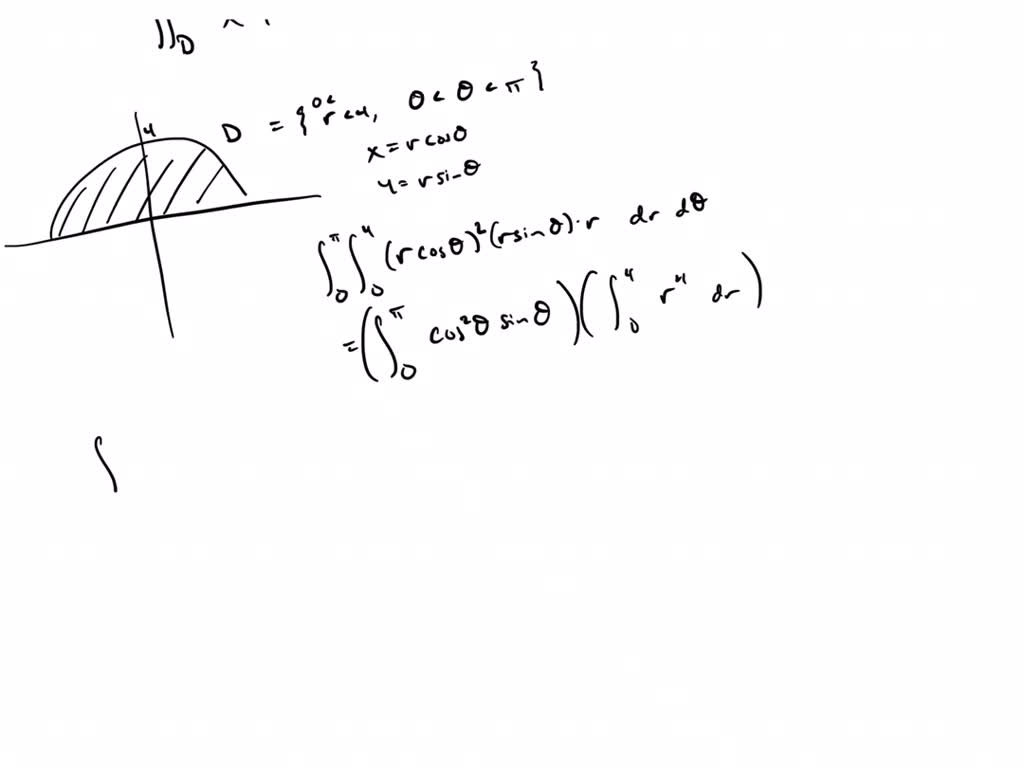 ∬_D
4
D = {0< r <4, 0 < θ < π}
x = r cosθ
y = r sinθ
∫_0^π ∫_0^4 (r cosθ)²(r sinθ)·r dr dθ
= (∫_0^π cos²θ sinθ)(∫_0^4 r⁴ dr)
∫